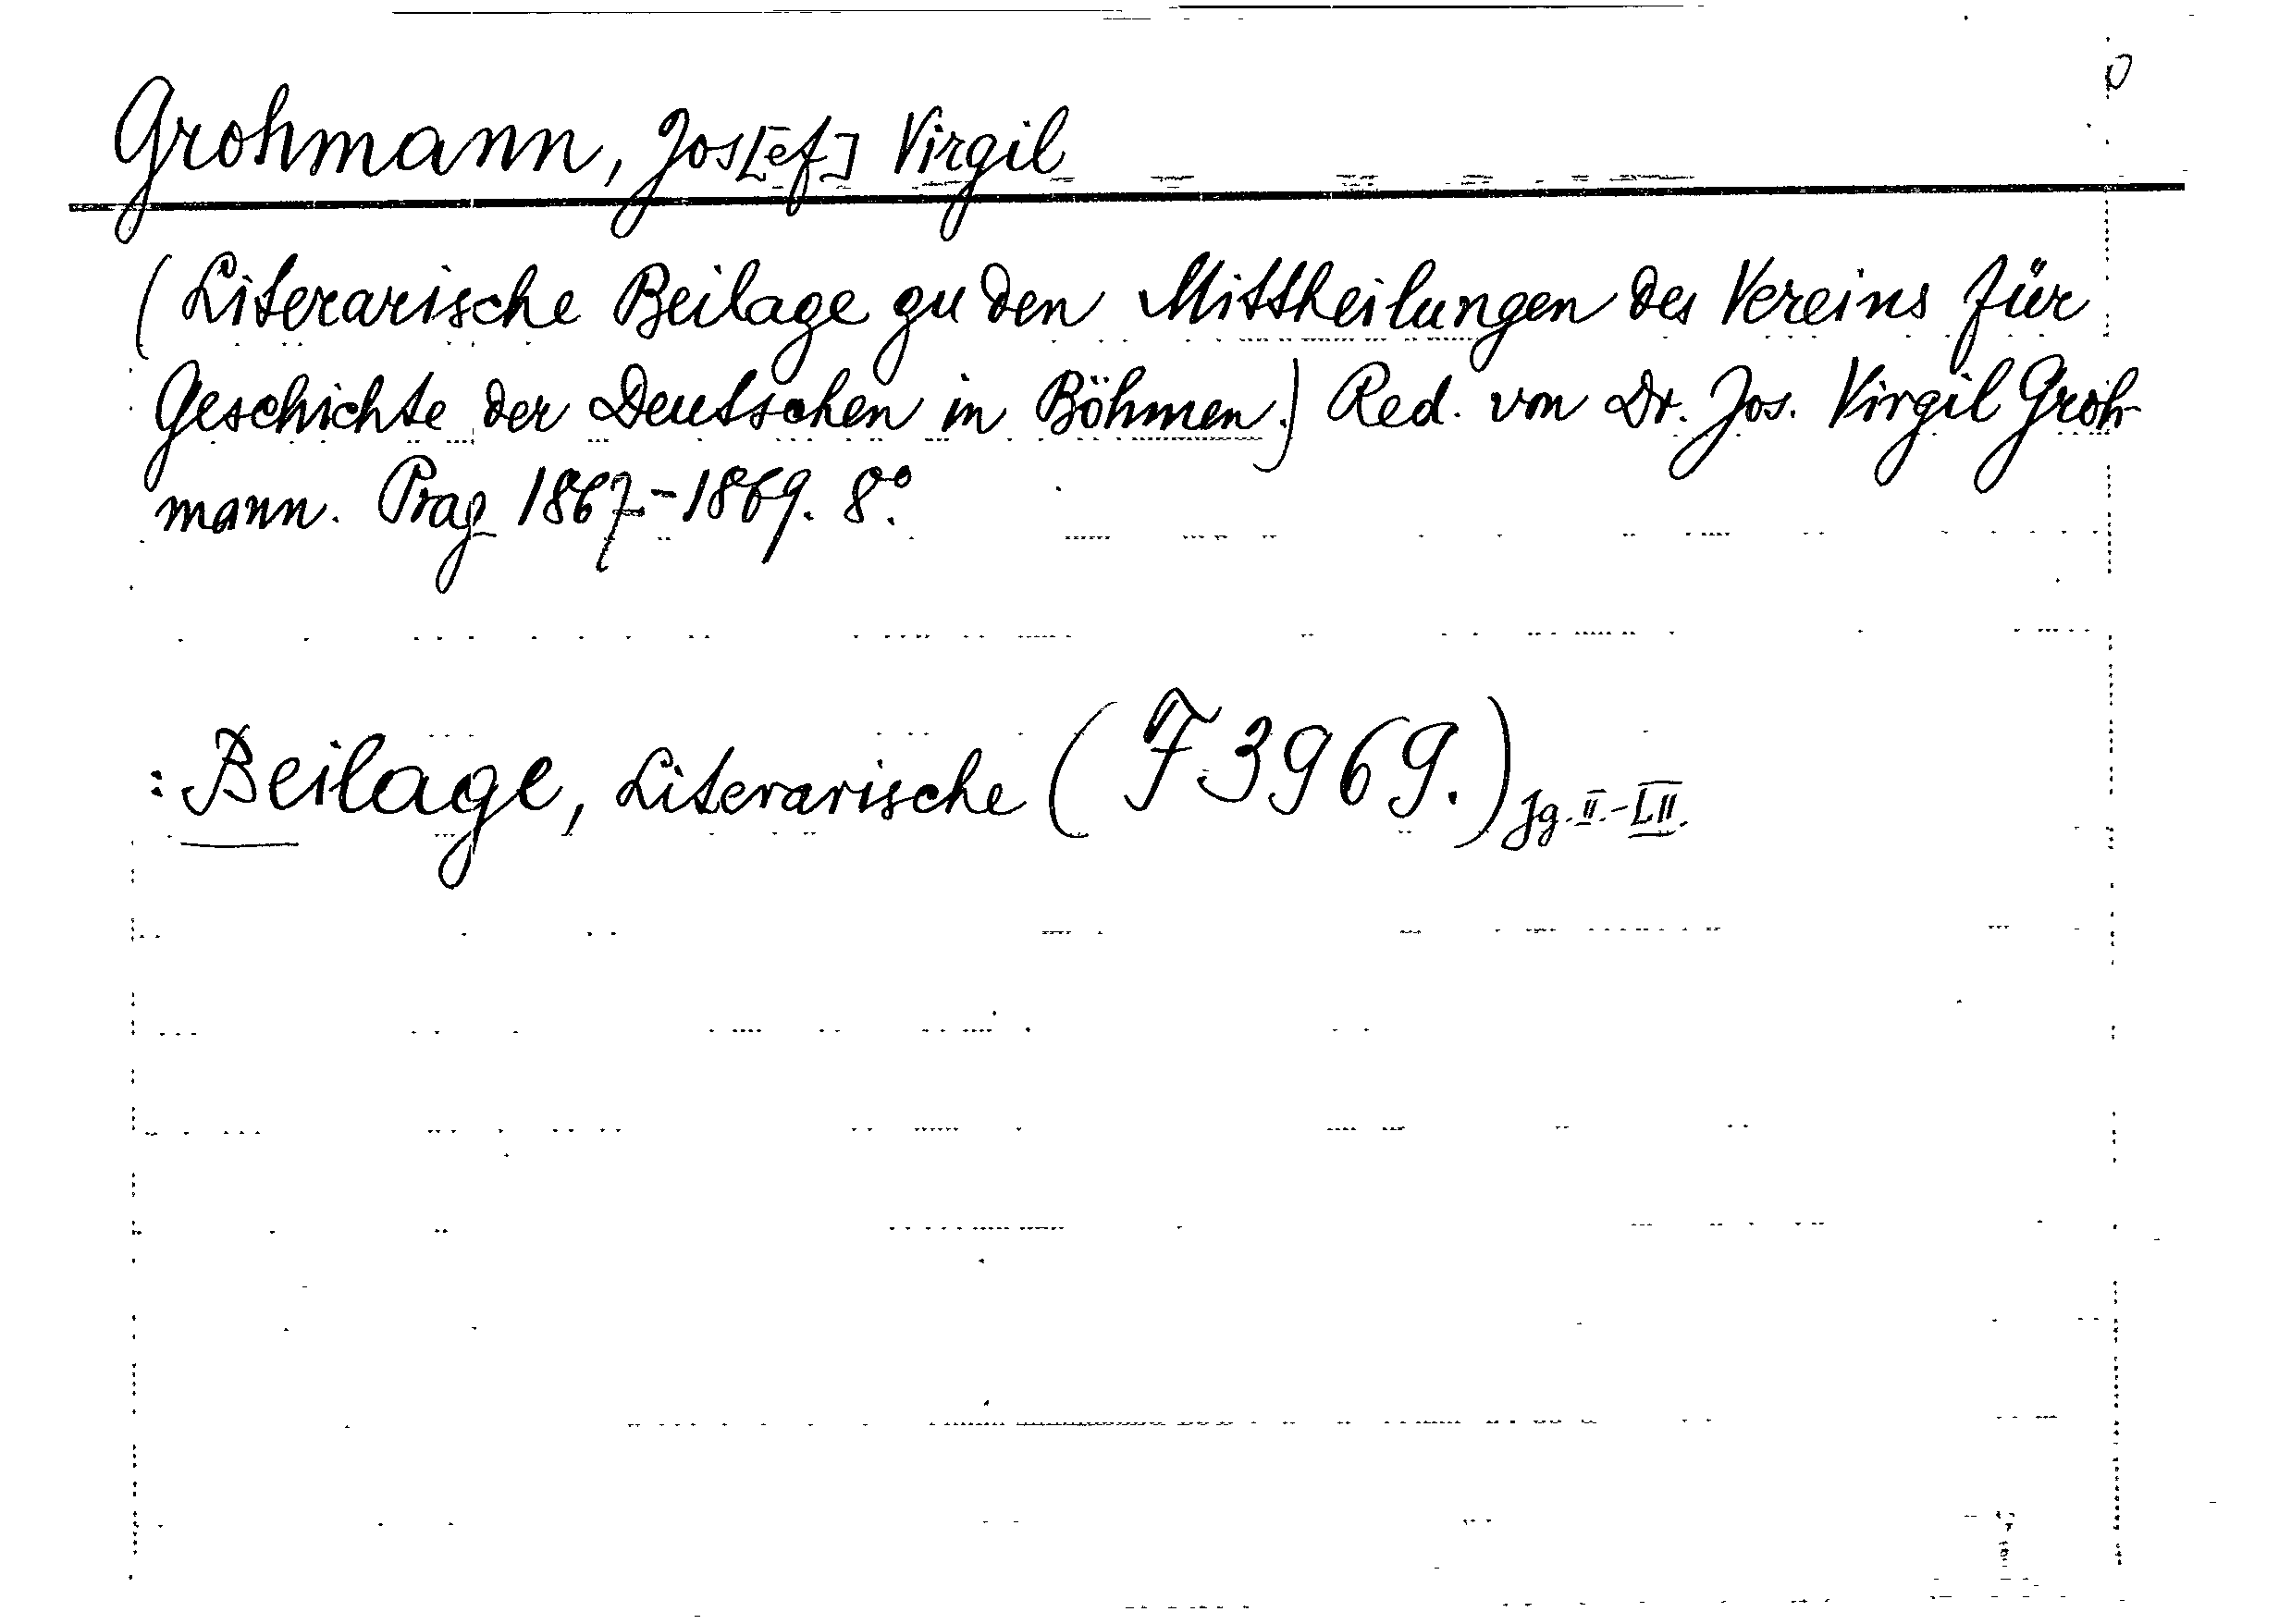 Grohmann, Jos[ef] Virgil
(Literarische Beilage zu den Mittheilungen des Vereins für
Geschichte der Deutschen in Böhmen.) Red. von Dr. Jos. Virgil Groh-
mann. Prag 1867-1869. 8°.
: Beilage, Literarische (F 3969.) Jg. II.-LII.